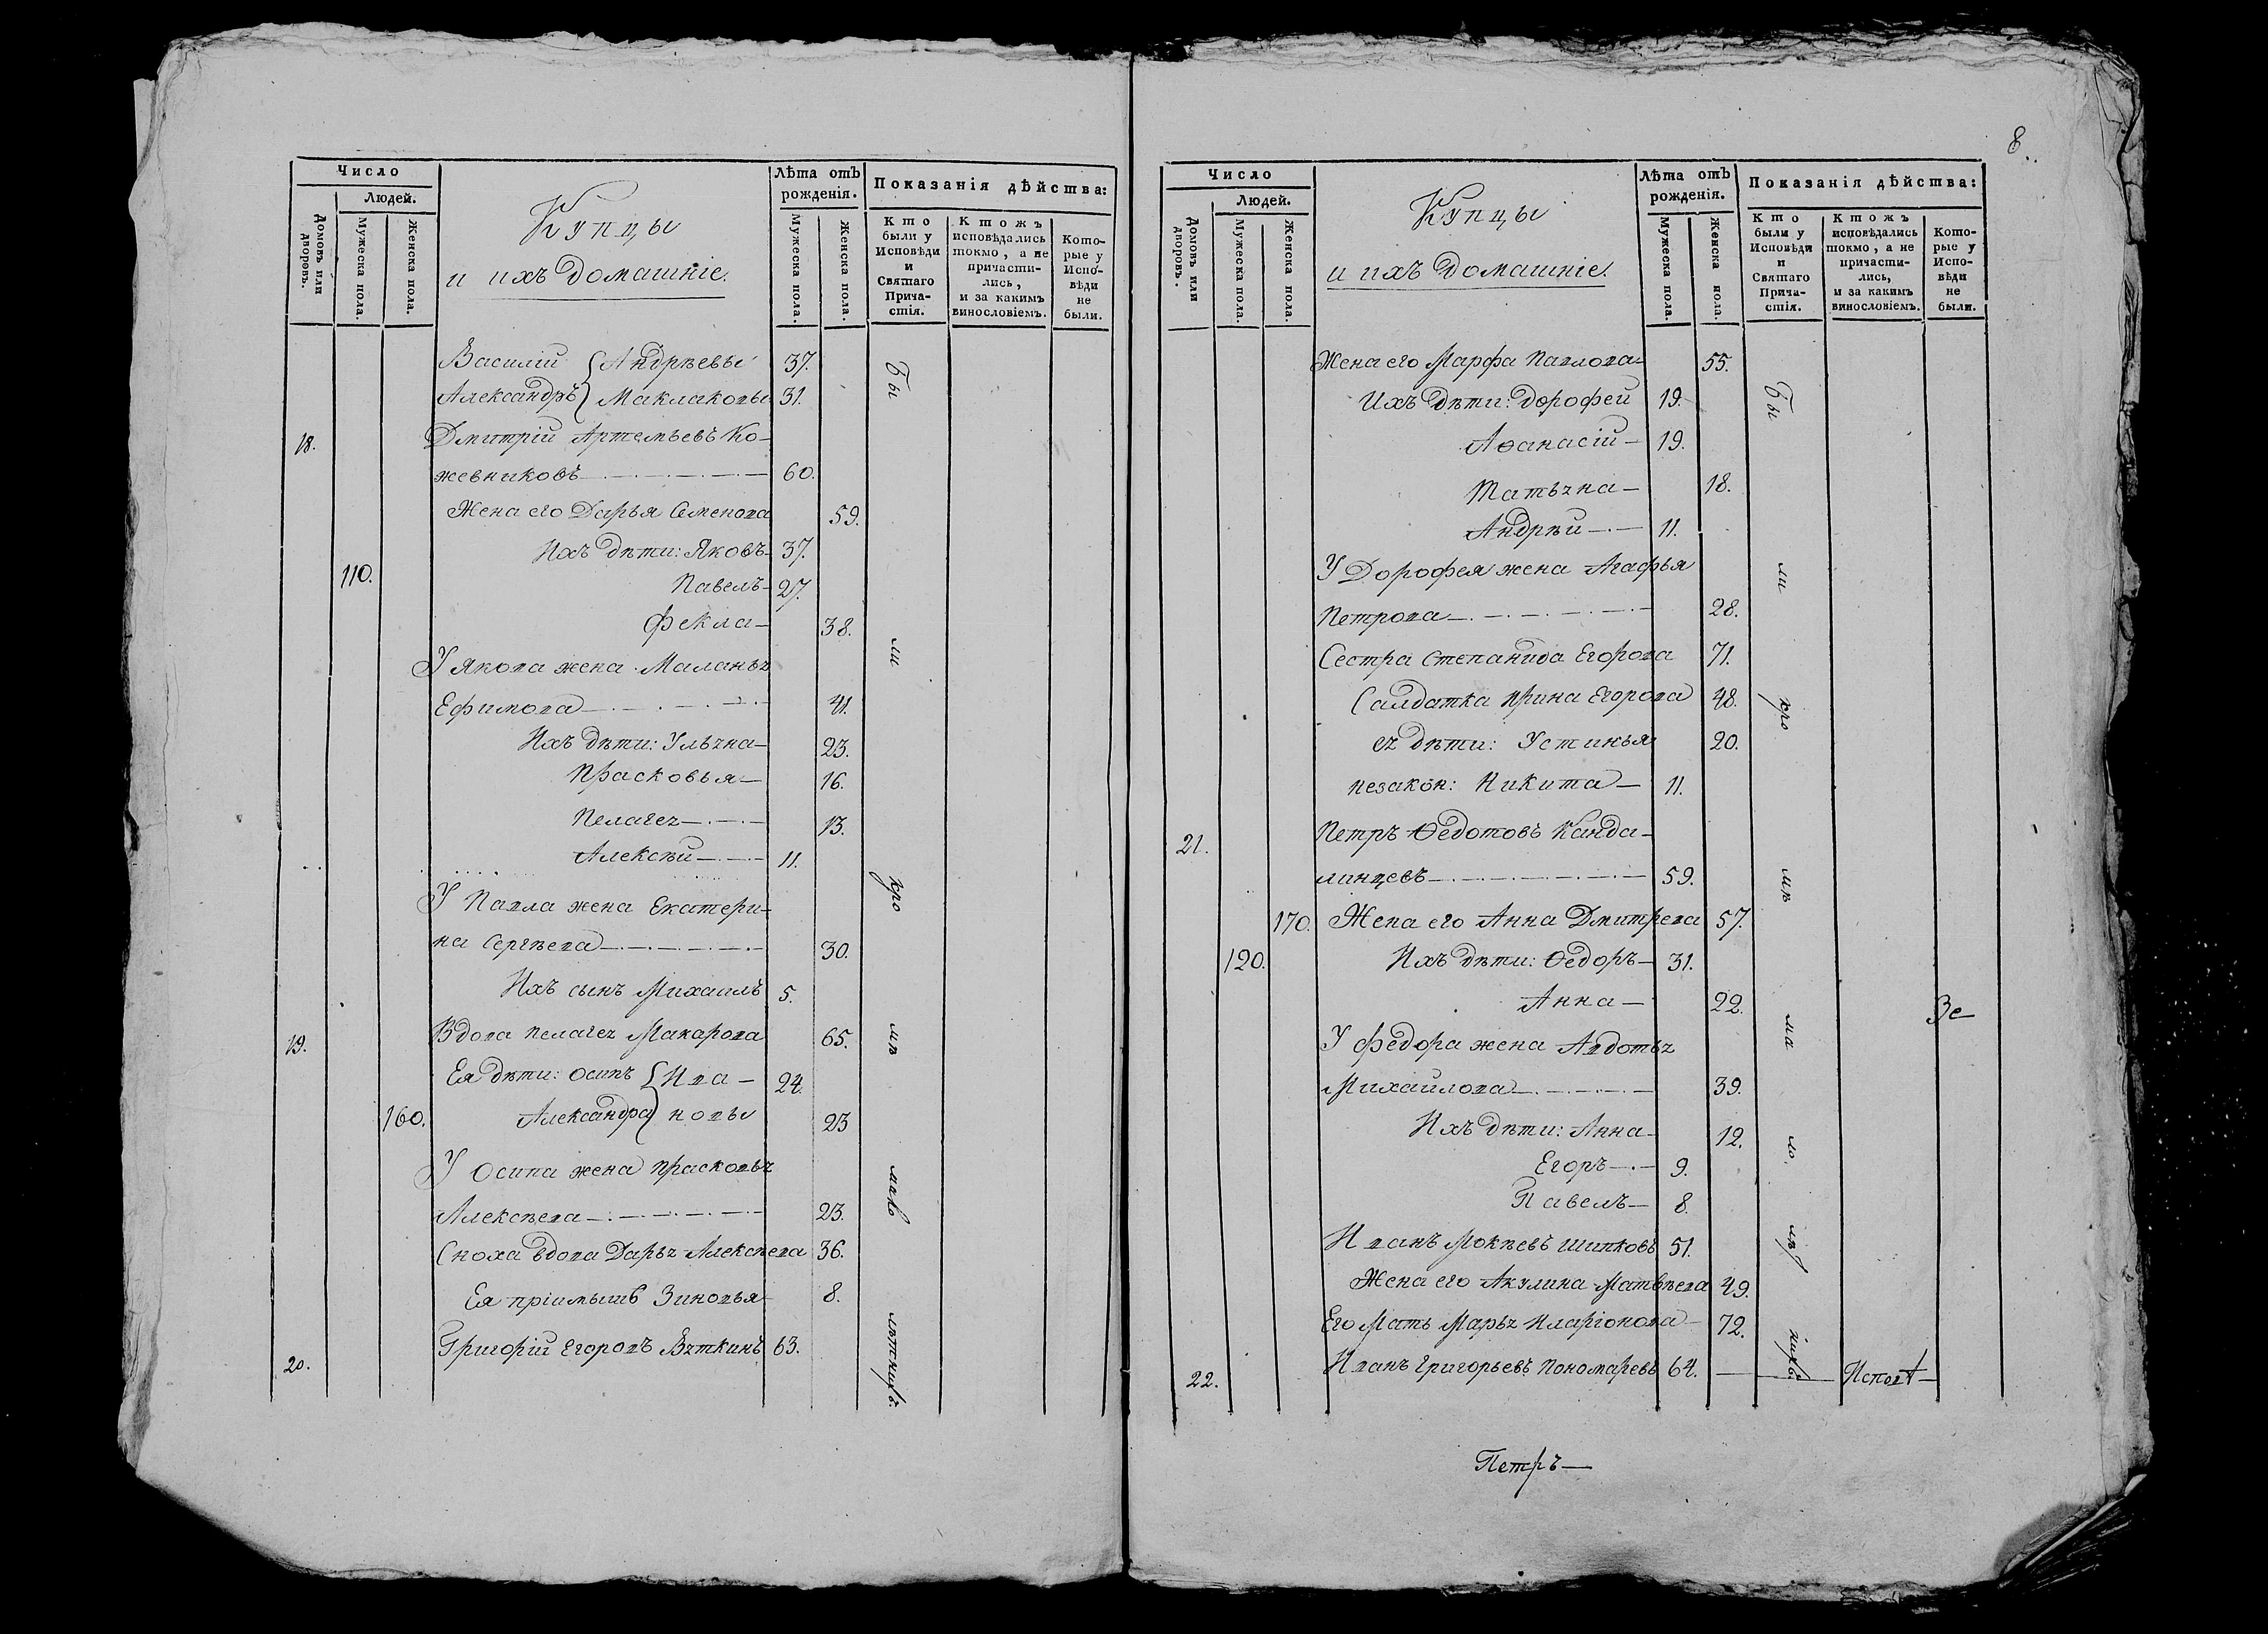 8.
Число
Людей.
Домовъ или дворовъ.
Мужеска пола.
Женска пола.
Купцы
и ихъ домашніе.
Лѣта отъ рожденія.
Мужеска пола.
Женска пола.
Показанія дѣйства:
Кто были у Исповѣди и Святаго Прича-стія.
Ктожъ исповѣдались токмо, а не причасти-лись, и за какимъ винословіемъ.
Кото-рые у Испо-вѣди не были.
Василій { Андрѣевы 37.
Александръ } Маклаковы 31.
18. Дмитрій Артемьевъ Ко-
жевниковъ 60.
Жена его Дарья Семенова 59.
Ихъ дѣти: Яковъ 37.
110. Павелъ 27.
Фекла 38.
У Якова жена Маланья
Ефимова 41.
Ихъ дѣти: Ульяна 23.
Прасковья 16.
Пелагея 13.
Алексѣй 11.
У Павла жена Екатери-
на Сергѣева 30.
Ихъ сынъ Михаилъ 5.
19. Вдова Пелагея Макарова 65.
Ея дѣти: Осипъ { Ива- 24.
160. Александра } новы 23
У Осипа жена Прасковья
Алексѣева 23.
Сноха вдова Дарья Алексѣева 36.
Ея пріимышъ Зиновья 8.
20. Григорій Егоровъ Вяткинъ 63.
Бы ли кро мѣ мало лѣтнихъ.
Число
Людей.
Домовъ или дворовъ.
Мужеска пола.
Женска пола.
Купцы
и ихъ домашніе.
Лѣта отъ рожденія.
Мужеска пола.
Женска пола.
Показанія дѣйства:
Кто были у Исповѣди и Святаго Прича-стія.
Ктожъ исповѣдались токмо, а не причасти-лись, и за какимъ винословіемъ.
Кото-рые у Испо-вѣди не были.
Жена его Марфа Павлова 55.
Ихъ дѣти: Дорофей 19.
Аѳанасій 19.
Татьяна 18.
Андрѣй 11.
У Дорофея жена Агафья
Петрова 28.
Сестра Степанида Егорова 71.
Салдатка Ирина Егорова 48.
ея дѣти: Устинья 20.
незакон: Никита 11.
21. Петръ Ѳедотовъ Канда-
линцевъ 59.
170. Жена его Анна Дмитрева 57.
120. Ихъ дѣти: Ѳедоръ 31.
Анна 22.
У Федора жена Авдотья
Михайлова 39.
Ихъ дѣти: Анна 12.
Егоръ 9.
Павелъ 8.
Иванъ Мокѣевъ Шипковъ 51.
Жена его Акулина Матвѣева 49.
Его Мать Марья Иларіонова 72.
22. Иванъ Григорьевъ Пономаревъ 64.
Бы ли кро мѣ ма ло лѣ
Петръ